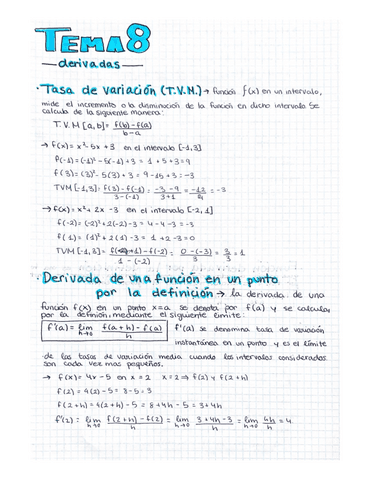 TEMA 8
derivadas
· Tasa de variación (T.V.M.) → función f(x) en un intervalo,
mide el incremento o la disminución de la función en dicho intervalo. Se
calcula de la siguiente manera:
T.V.M [a,b] = f(b)-f(a) / b-a
→ f(x) = x²-5x+3 en el intervalo [-1,3]
f(-1) = (-1)²-5(-1)+3 = 1+5+3 = 9
f(3) = (3)²-5(3)+3 = 9-15+3 = -3
TVM [-1,3] = f(3)-f(-1) / 3-(-1) = -3-9 / 3+1 = -12 / 4 = -3
→ f(x) = x²+2x-3 en el intervalo [-2,1]
f(-2) = (-2)²+2(-2)-3 = 4-4-3 = -3
f(1) = (1)²+2(1)-3 = 1+2-3 = 0
TVM [-1,3] = f(1)-f(-2) / 1-(-2) = 0-(-3) / 3 = 3 / 3 = 1
· Derivada de una función en un punto
por la definición → la derivada de una
función f(x) en un punto x=a se denota por f'(a) y se calcula,
por la definión, mediante el siguiente límite:
f'(a) = lim h→0 f(a+h)-f(a) / h f'(a) se denomina tasa de variación
instantánea en un punto y es el límite
de las tasas de variación media cuando los intervalos considerados
son cada vez mas pequeños.
→ f(x) = 4x-5 en x=2 x=2 ⇒ f(2) y f(2+h)
f(2) = 4(2)-5 = 8-5 = 3
f(2+h) = 4(2+h)-5 = 8+4h-5 = 3+4h
f'(2) = lim h→0 f(2+h)-f(2) / h = lim h→0 3+4h-3 / h = lim h→0 4h / h = 4